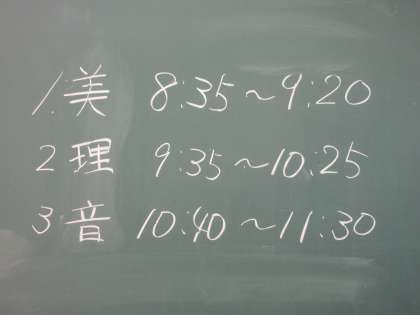 1:美 8:35～9:20
2 理 9:35～10:25
3 音 10:40～11:30